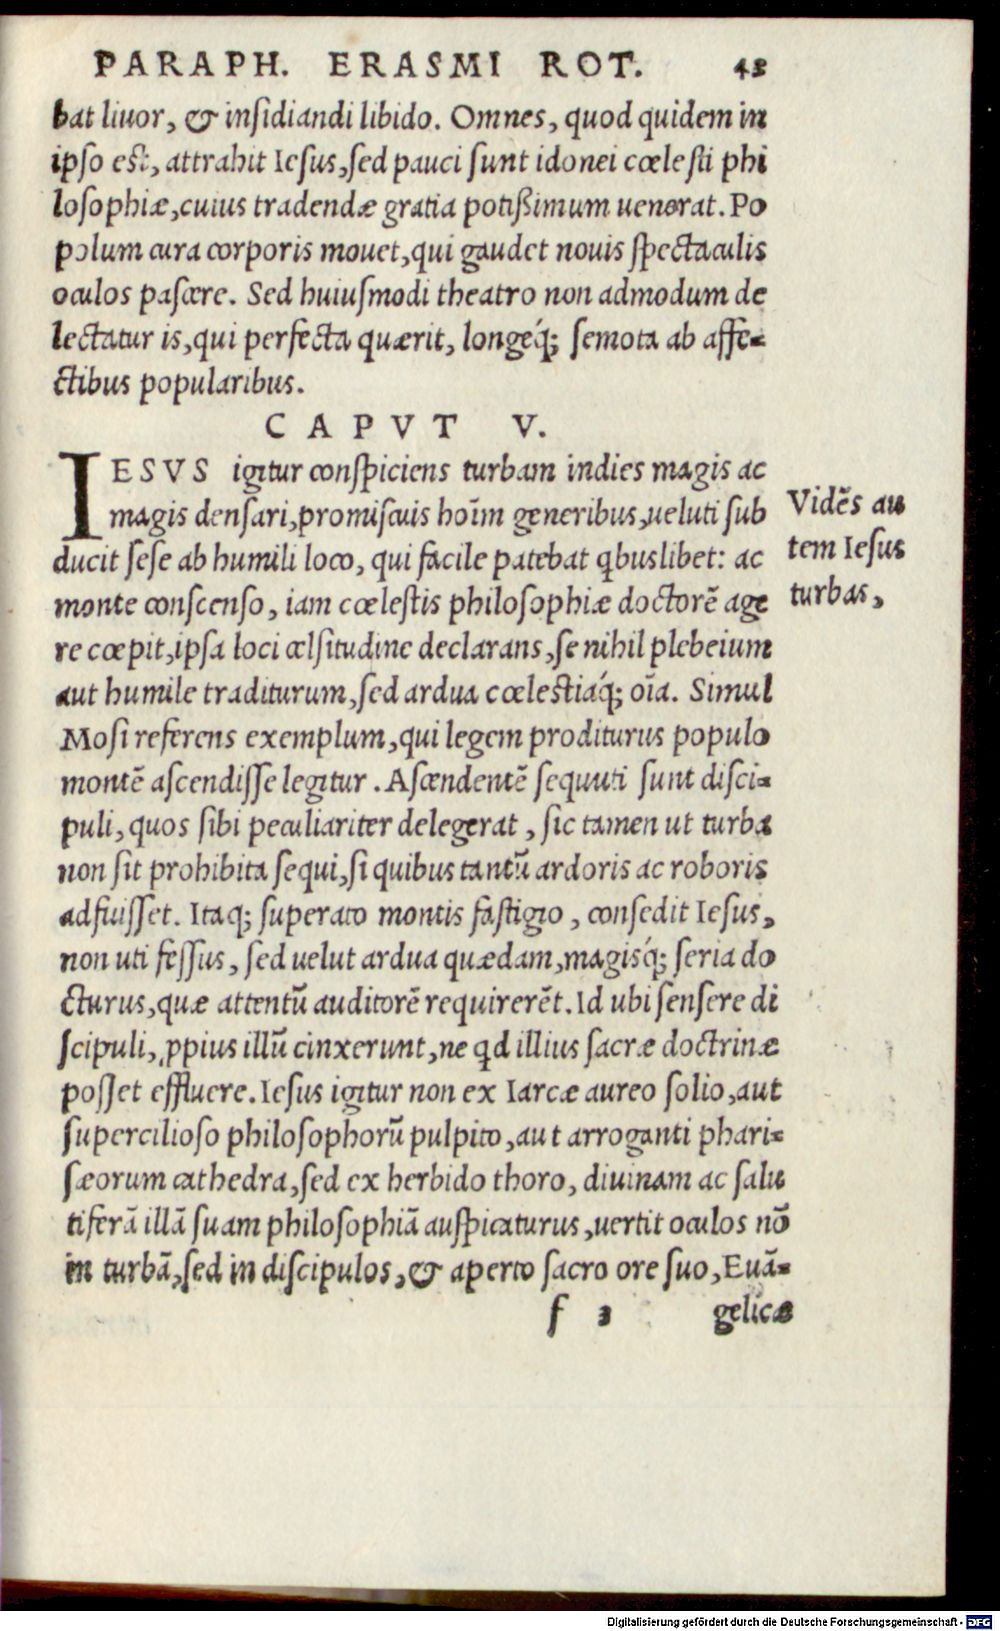 PARAPH. ERASMI ROT. 43
bat liuor, & insidiandi libido. Omnes, quod quidem in
ipso est, attrahit Iesus, sed pauci sunt idonei cœlesti phi
losophiæ, cuius tradendæ gratia potißimum uenerat. Po
polum cura corporis mouet, qui gaudet nouis spectaculis
oculos pascere. Sed huiusmodi theatro non admodum de
lectatur is, qui perfecta quærit, longeq́; semota ab affe-
ctibus popularibus.
CAPVT V.
IESVS igitur conspiciens turbam indies magis ac
magis densari, promiscuis hoīm generibus, ueluti sub
ducit sese ab humili loco, qui facile patebat qbuslibet: ac
monte conscenso, iam cœlestis philosophiæ doctorē age
re cœpit, ipsa loci celsitudine declarans, se nihil plebeium
aut humile traditurum, sed ardua cœlestiaq́; oīa. Simul
Mosi referens exemplum, qui legem proditurus populo
montē ascendisse legitur. Ascendentē sequuti sunt disci-
puli, quos sibi peculiariter delegerat, sic tamen ut turba
non sit prohibita sequi, si quibus tantū ardoris ac roboris
adfuisset. Itaq; superato montis fastigio, consedit Iesus,
non uti fessus, sed uelut ardua quædam, magisq́; seria do
cturus, quæ attentū auditorē requirerēt. Id ubi sensere di
scipuli, ꝓpius illū cinxerunt, ne qd illius sacræ doctrinæ
posset effluere. Iesus igitur non ex Iarcæ aureo solio, aut
supercilioso philosophorū pulpito, aut arroganti phari-
sæorum cathedra, sed ex herbido thoro, diuinam ac salu
tiferā illā suam philosophiā auspicaturus, uertit oculos nō
in turbā, sed in discipulos, & aperto sacro ore suo, Euā-
f 3 gelicæ
Vidēs au
tem Iesus
turbas,
Digitalisierung gefördert durch die Deutsche Forschungsgemeinschaft - DFG